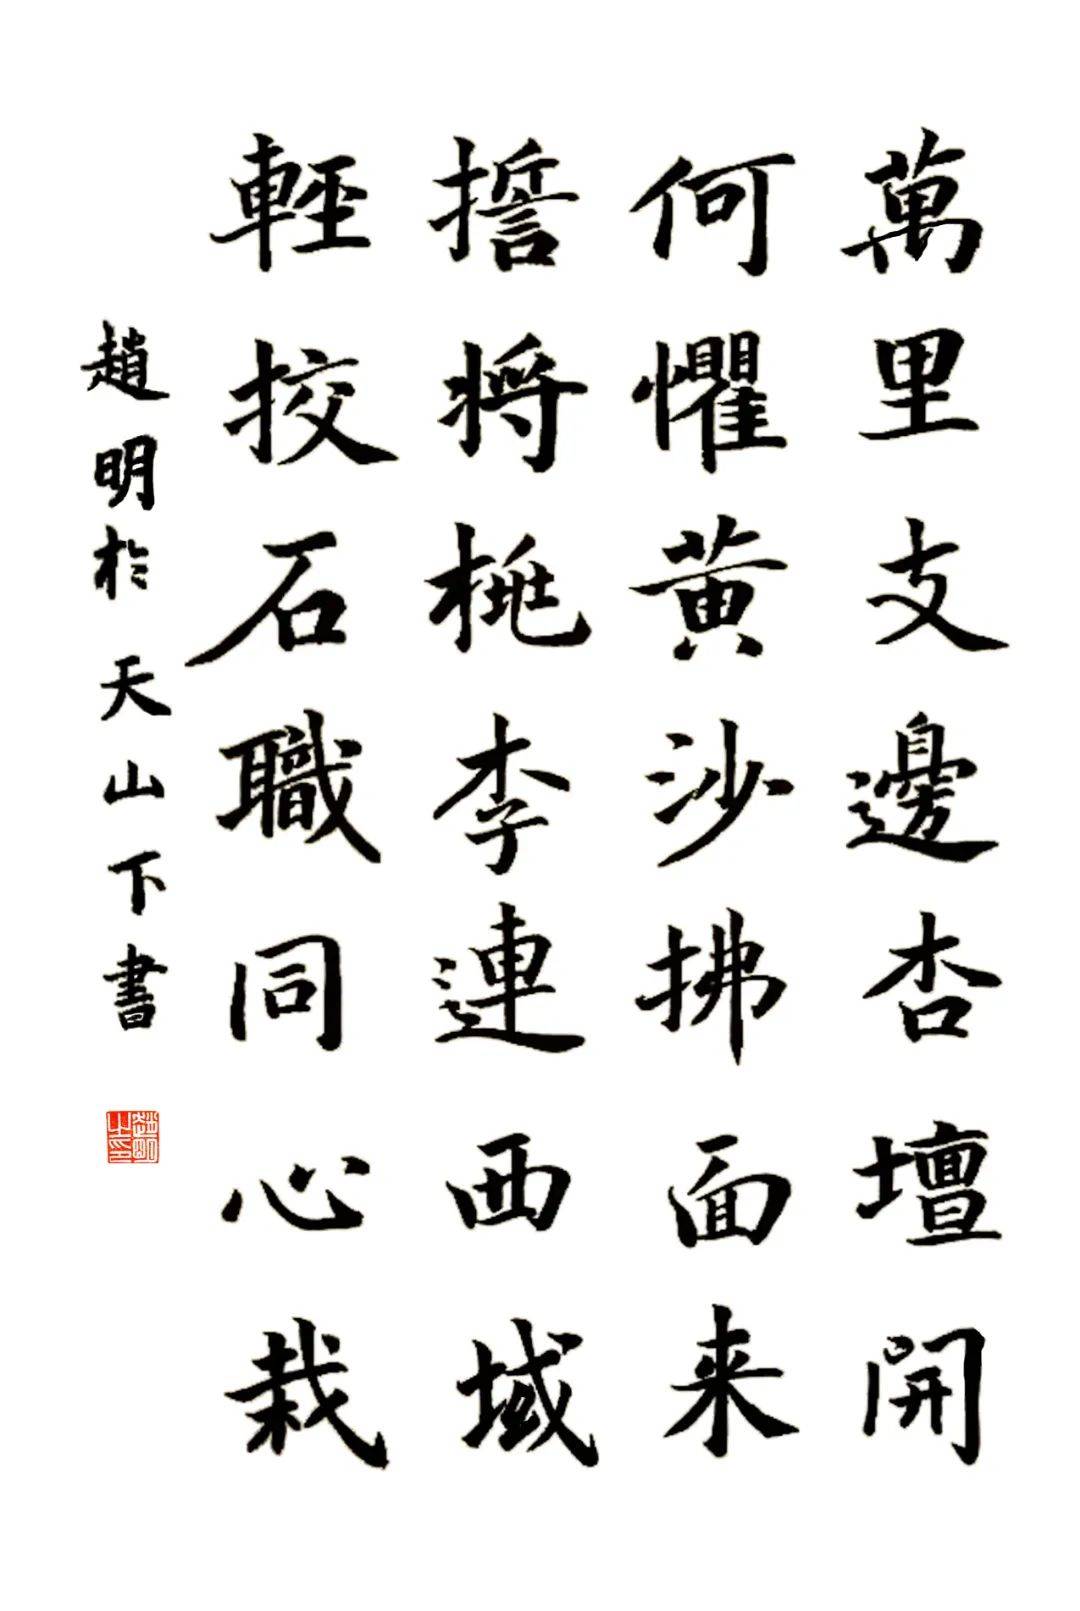 萬里支邊杏壇開
何懼黄沙拂面来
誓將桃李連西域
輕挍石職同心栽
趙明於天山下書
趙明之印